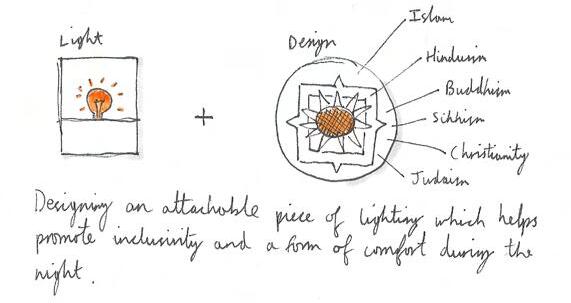 Light
+
Design
Islam
Hinduism
Buddhism
Sikhism
Christianity
Judaism
Designing an attachable piece of lighting which helps
promote inclusivity and a form of comfort during the
night.